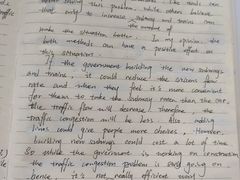 solving this problem, while others believe
that only to increase subways and trains can
the number of
make the situation better. In my opinion, the
both methods can have a positive effect on
this situation.
If the government building the new subways
and trains, it could reduce the citizens flow
rate and when they feel it's more convenient
for them to take the subway than the car,
the traffic flow will decrease. Therefore, the
traffic congestion will be less. Also, adding
lines could give people more choices. However,
building new subways could cost a lot of time
So while the government is working on constructing
the traffic congestion problem is still going on
hence, it's not really efficient way